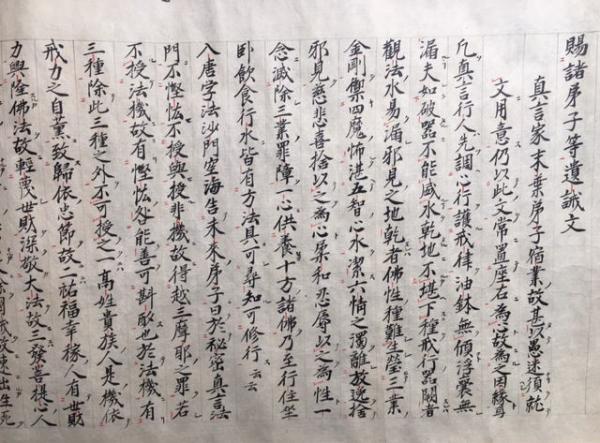 賜諸弟子等遺誡文
真言家末葉弟子宿業故甚以愚迷須就
文用意仍以此文常置座右為心故為之因縁耳
凡真言行人先調心行護戒律油鉢無傾浮囊無
漏夫如破器不能盛水乾地不堪下種戒行器闕者
觀法水易漏邪見之地乾者佛性種難生瑩三業
金剛禦四魔怖湛五智心水潔六情之濁離放逸捨
邪見慈悲喜捨以之為心柔和忍辱以之為性一
念滅除三業罪障一心供養十方諸佛乃至行住坐
卧飲食行水皆有方法具可尋知可修行云云
入唐学法沙門空海告末末弟子曰於秘密真言法
門不慳悋不授與授非機故得越三摩耶之罪若
不授法機故有慳悋咎能善可斟酌也於法機有
三種除此三種之外不可授之一高姓貴族人是機依
戒力之自薫致歸依忠節故二祐福幸稼人有世財
力興隆佛法故輕蔑世財深敬大法故三發菩提心人
故速出生死